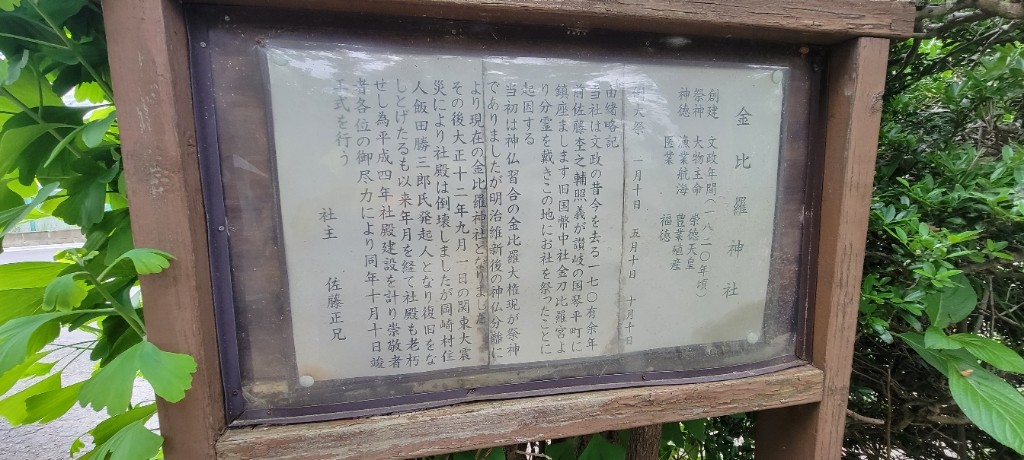 金比羅神社
創建 文政年間(一八二〇年頃)
祭神 大物主命 崇徳天皇
神徳 漁業航海 豊業殖産
医業 福徳
例大祭 一月十日 五月十日 十月十日
由緒略記
当社は文政の昔今を去る一七〇有余年
前佐藤杢之輔照義が讃岐の国琴平町に
鎮座まします旧国幣中社金刀比羅宮よ
り分霊を戴きこの地にお社を祭ったことに
起因する
当初は神仏習合の金比羅大権現が祭神
でありましたが明治維新後の神仏分離に
より現在の金比羅神社となりました
その後大正十二年九月一日の関東大震
災により社殿は倒壊しましたが岡崎村住
人飯田勝三郎氏発起人となり復旧をな
しとげたるも以来年月を経て社殿も老朽
せし為平成四年社殿建設を計り崇敬者
各位の御尽力により同年十月十日竣
工式を行う
社主 佐藤正兄